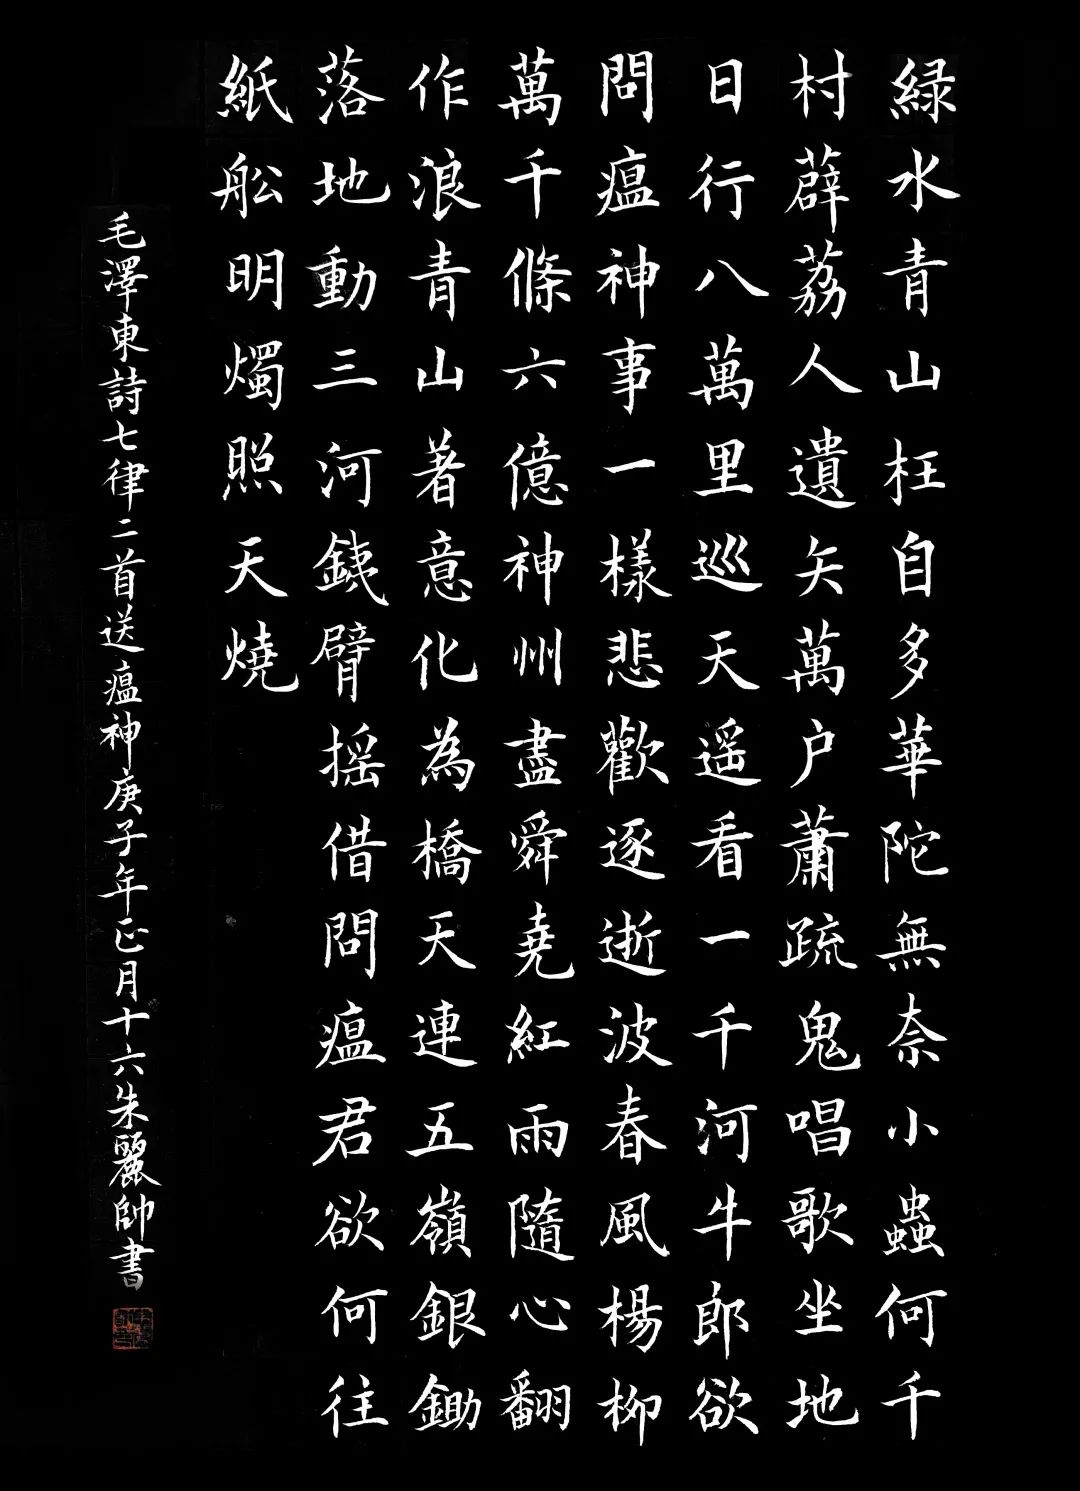 緑水青山枉自多華陀無奈小蟲何千
村薜荔人遺矢萬户蕭疏鬼唱歌坐地
日行八萬里巡天遥看一千河牛郎欲
問瘟神事一樣悲歡逐逝波春風楊柳
萬千條六億神州盡舜堯紅雨隨心翻
作浪青山著意化為橋天連五嶺銀鋤
落地動三河銕臂摇借問瘟君欲何往
紙舩明燭照天燒
毛澤東詩七律二首送瘟神庚子年正月十六朱麗帥書